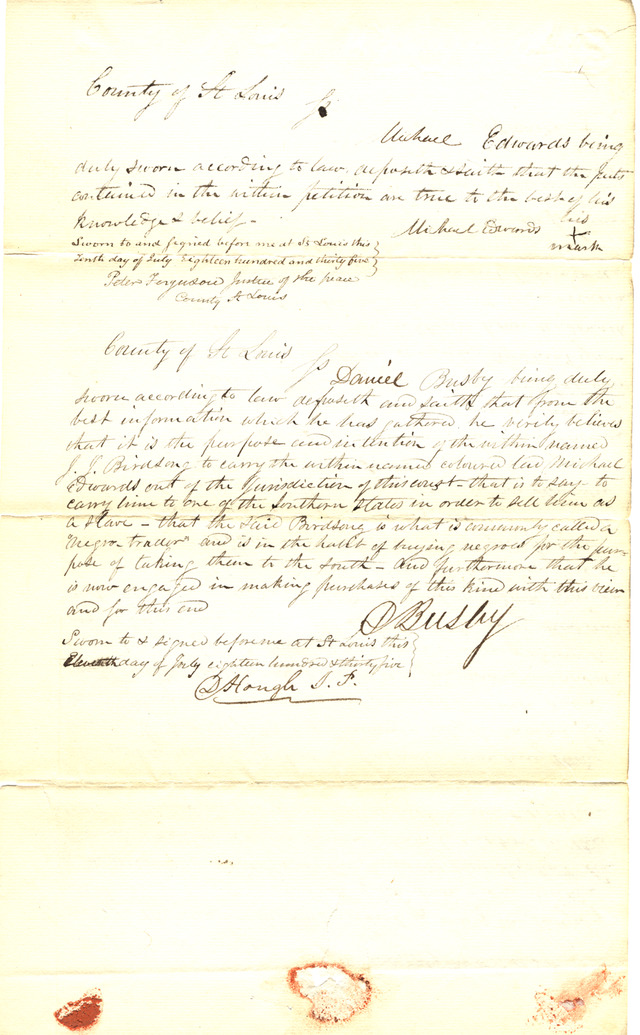 County of St Louis Ss
Michael Edwards being
duly sworn according to law deposeth & saith that the facts
contained in the within petition are true to the best of his
Knowledge & belief -
Michael Edwards his
+
mark
Sworn to and signed before me at St Louis this
Tenth day of July Eighteen hundred and thirty five
Peter Ferguson Justice of the peace
County St Louis
County of St Louis Ss
Daniel Busby being duly
sworn according to law deposeth and saith that from the
best information which he has gathered he verily believes
that it is the purpose and intention of the within named
J. J. Birdsong to carry the within named coloured lad Michael
Edwards out of the Jurisdiction of this court - that is to say to
carry him to one of the Southern States in order to sell him as
a slave - that the said Birdsong is what is commonly called a
"negro trader" and is in the habit of buying negroes for the pur-
pose of taking them to the south - and furthermore that he
is now engaged in making purchases of this kind with this view
and for this end
D Busby
Sworn to & signed before me at St Louis this
Eleventh day of July eighteen hundred & thirty five
D Hough J. P.